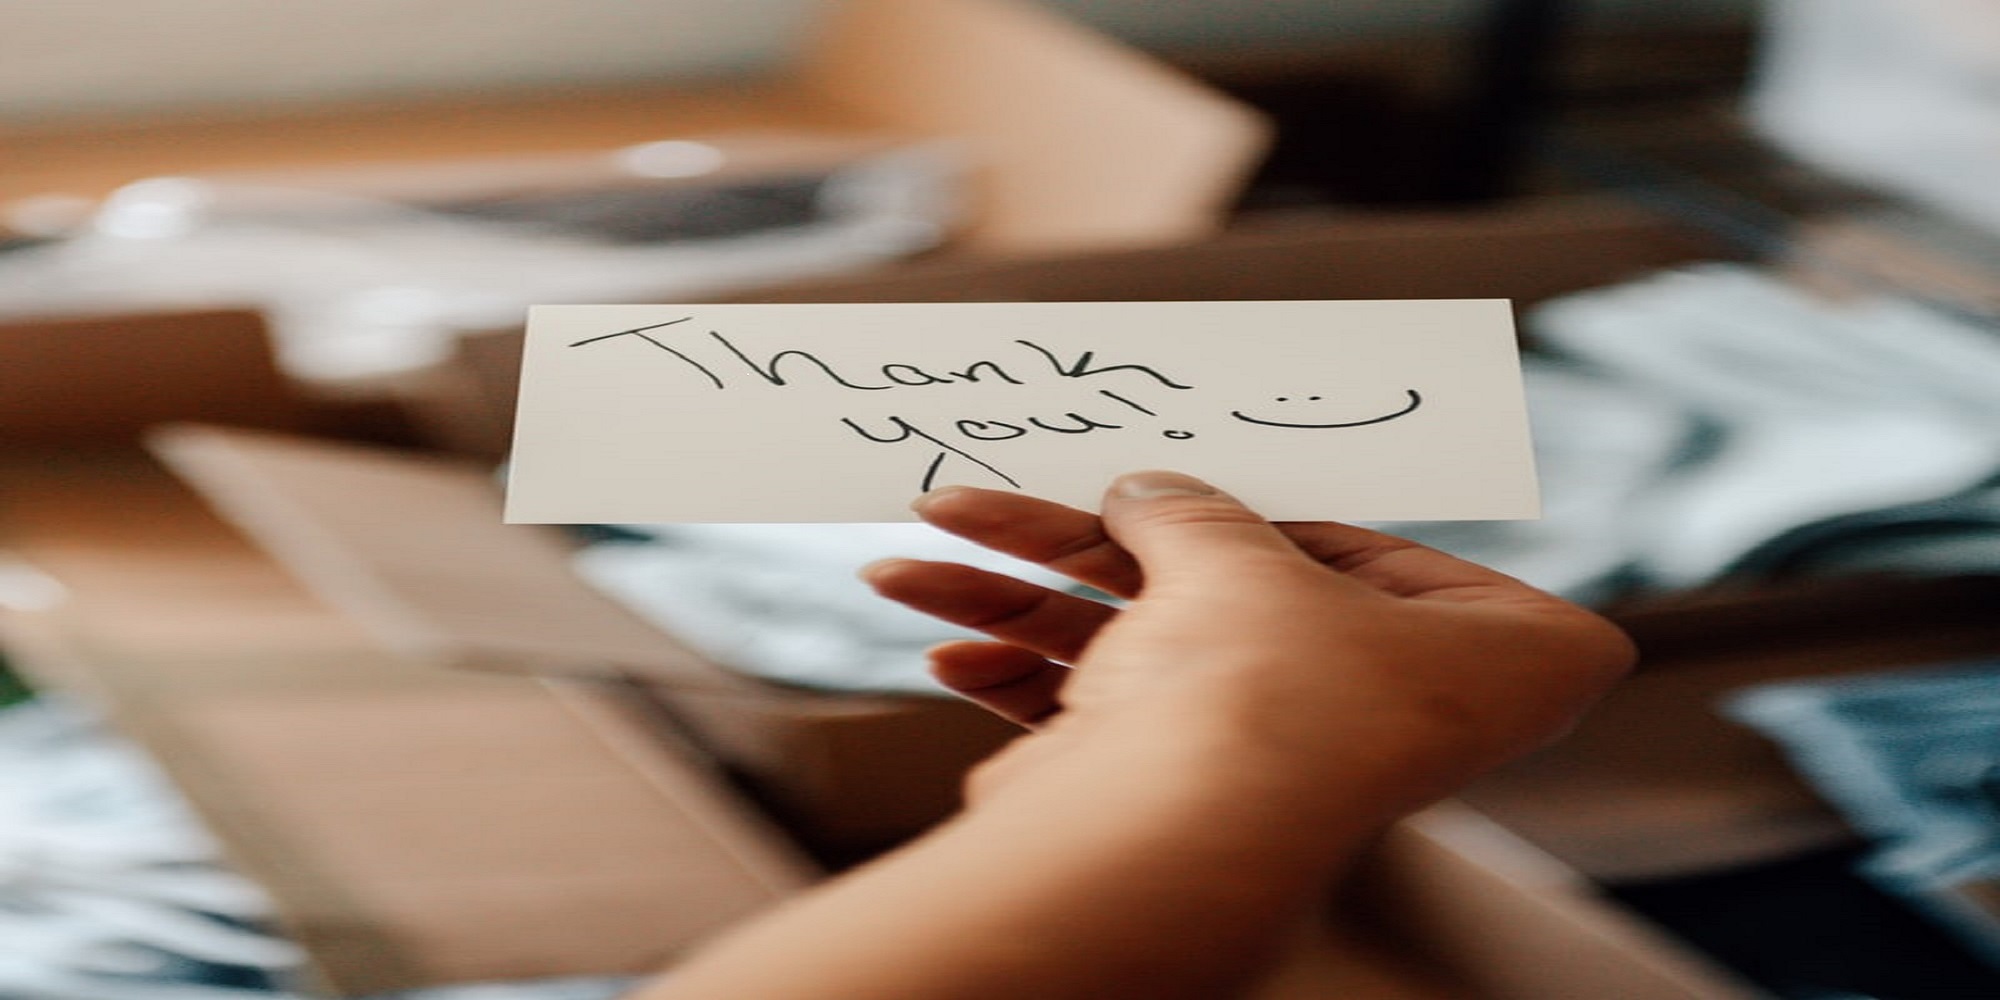 Thank
you! :)